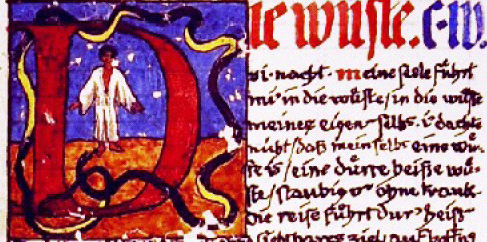 Die wüste. c. iv.
vi. nacht. meine seele führt
mi in die wüste/in die wüste
meines eigen selbs. i dachte
nicht/daß mein selbs eine wü-
ste is/eine dürre heiße wü-
ste/staubig u ohne trank
die reise führt dur heiß